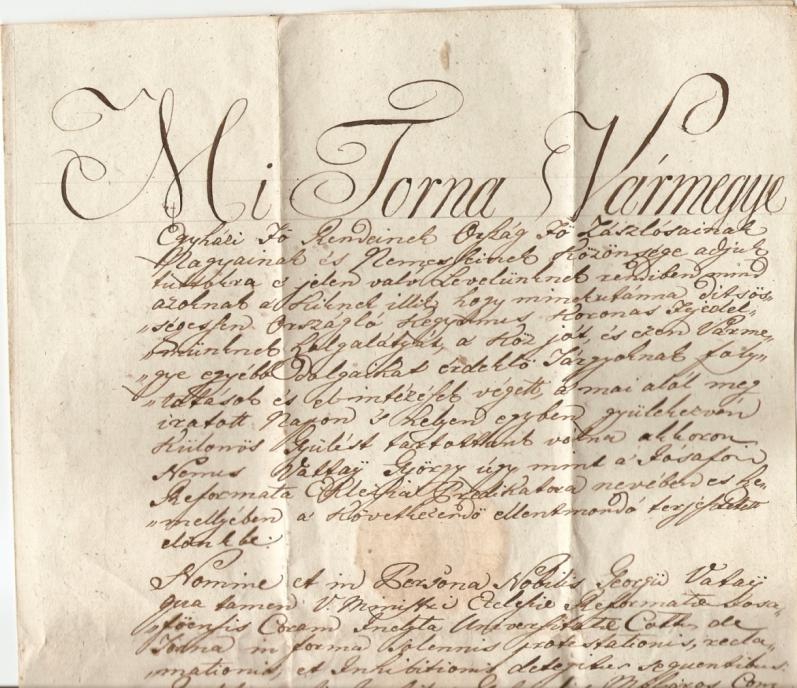 Mi Torna Vármegye
Egyházi Fő Rendeinek Ország Fő Zászlósainak
Nagyainak és Nemesseinek Közönsége adjuk
tudtokra é jelen való Levelünknek rendiben mind
azoknak a kiknek illik, hogy minekutánna ditsős„
„ségessen Országló Kegyelmes Koronás Fejedel„
„münknek szolgálatját, a Köz jót, és ezen Várme„
„gye egyébb dolgaikat érdeklő Tárgyoknak foly„
„tatások és el intézések végett, a mai alol meg
iratott Napon 's helyen egyben gyülekezvén
Különös Gyülést tartottunk volna akkoron
Nemes Vattaÿ György úgy mint a Josafői
Reformata Eklésia Prédikátora nevében és Sze„
„mellyében a következendő ellentmondó terjesztetett
előnkbe.
Nomine et in Persona Nobilis Georgii Vataÿ
qua tamen V. Ministri Eclesie Reformatæ Josa„
„föensis Coram Inclyta Universitate Cott. de
Torna in forma Solennis protestationis, recla„
„mationis, et Inhibitionis detegitur sequentibus: